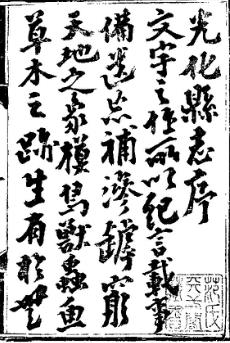 光化縣志序
文字之作所以紀言載事
備遺忘補滲罅窮
天地之象模鳥獸蟲魚
草木之跡生有於無